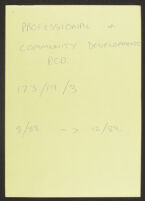 PROFESSIONAL &
COMMUNITY DEVELOPMENT
PCD
173/19/3
9/88 -> 12/89